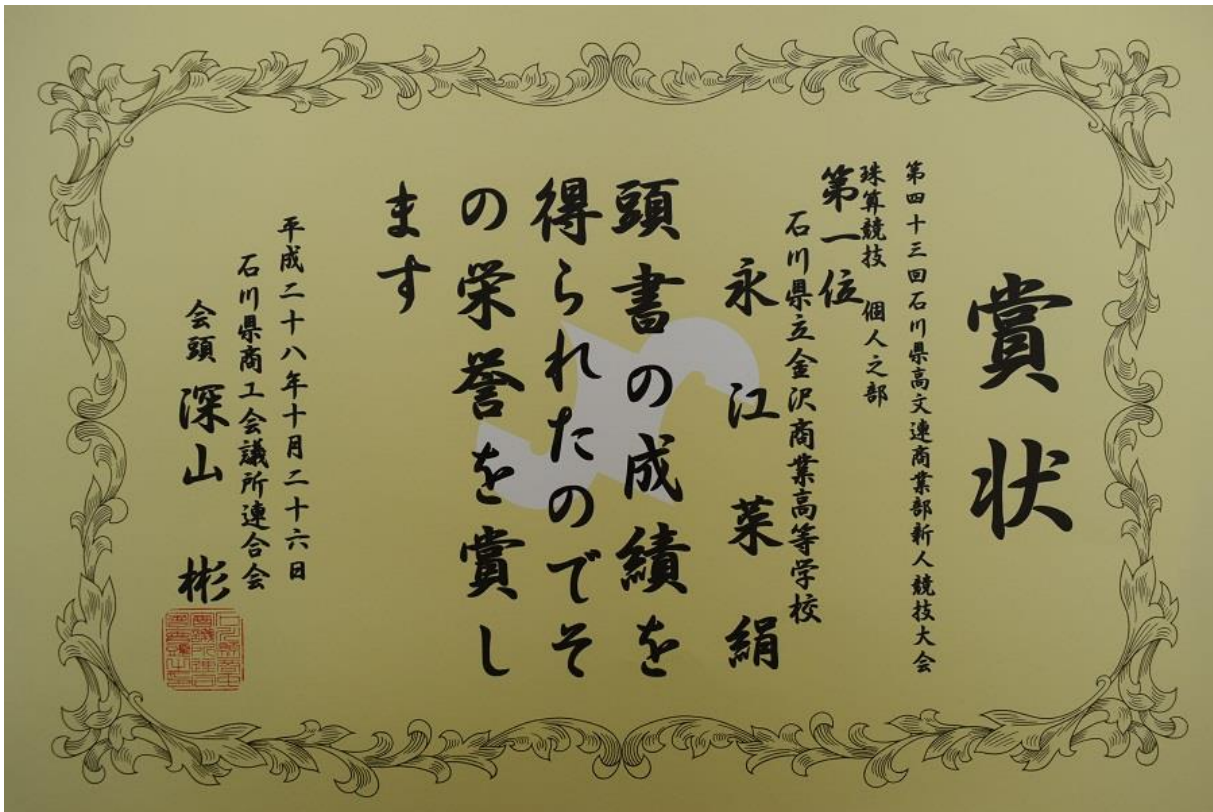 賞状
第四十三回石川県高文連商業部新人競技大会
珠算競技 個人之部
第一位
石川県立金沢商業高等学校
永江菜絹
頭書の成績を
得られたのでそ
の栄誉を賞し
ます
平成二十八年十月二十六日
石川県商工会議所連合会
会頭 深山 彬